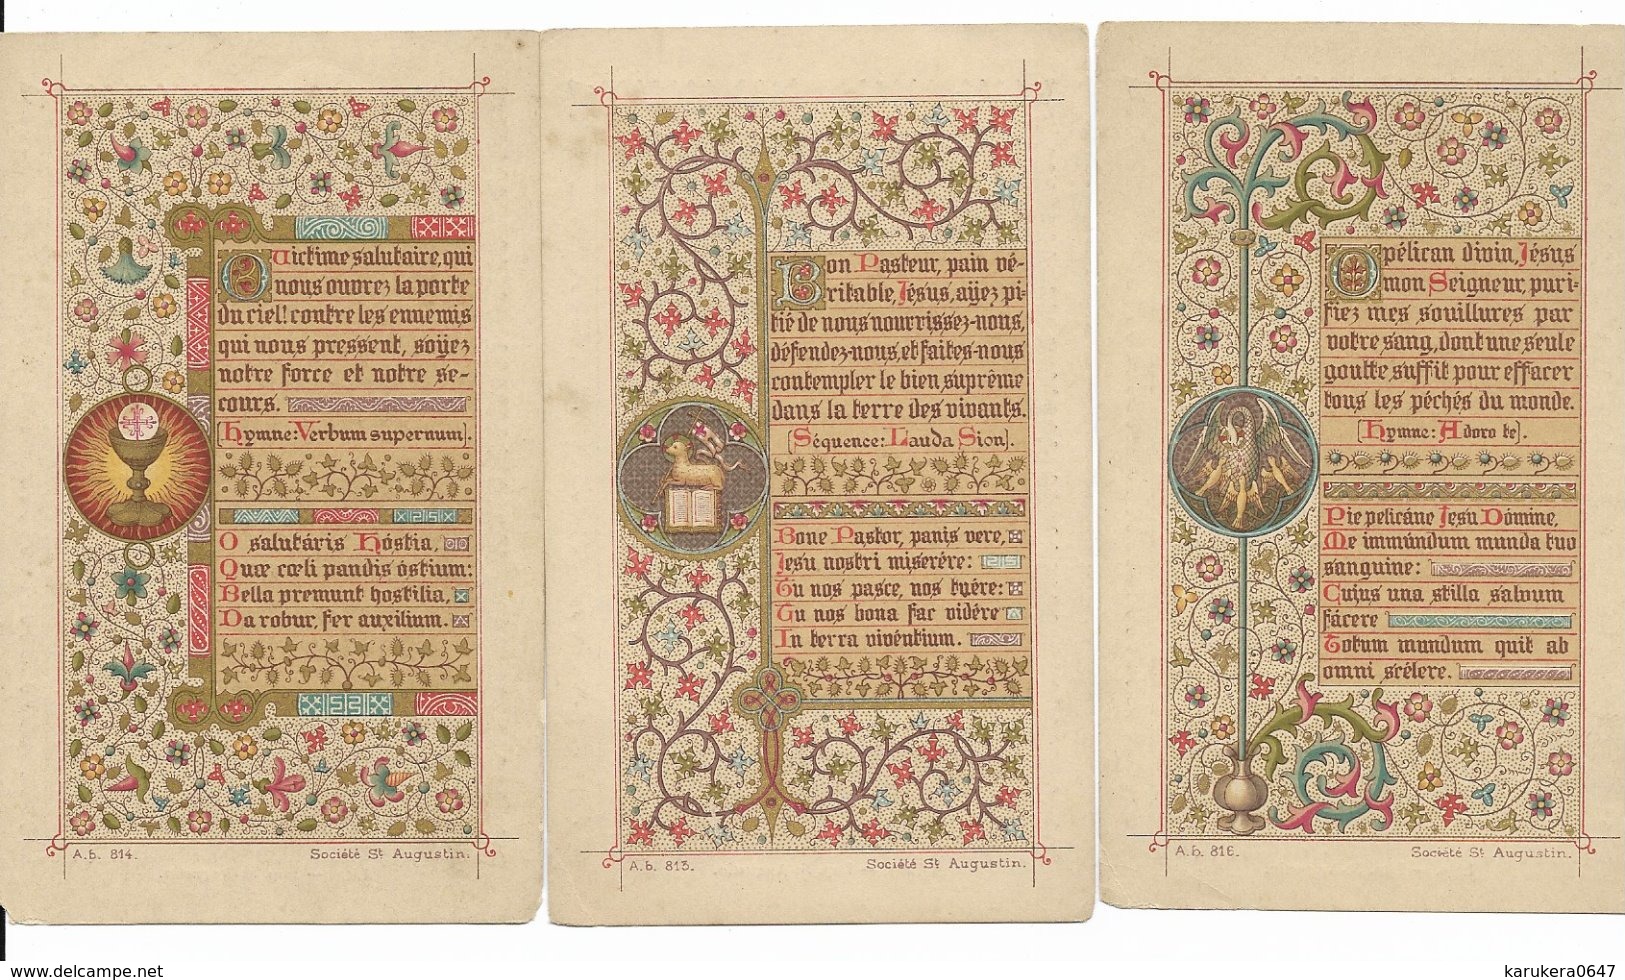 O Victime salutaire, qui
nous ouvrez la porte
du ciel! contre les ennemis
qui nous pressent, soyez
notre force et notre se-
cours.
(Hymne: Verbum supernum).
O salutáris Hóstia,
Quæ cœli pandis óstium:
Bella premunt hostilia,
Da robur, fer auxilium.
A.b. 814. Société St Augustin.
Bon Pasteur, pain vé-
ritable, Jésus, ayez pi-
tié de nous nourrissez-nous,
défendez-nous, et faites-nous
contempler le bien suprême
dans la terre des vivants.
(Séquence: Lauda Sion).
Bone Pastor, panis vere,
Jesu nostri miserére:
Tu nos pasce, nos tuére:
Tu nos bona fac vidére
In terra vivéntium.
A.b. 813. Société St Augustin.
O pélican divin, Jésus
mon Seigneur, puri-
fiez mes souillures par
votre sang, dont une seule
goutte suffit pour effacer
tous les péchés du monde.
(Hymne: Adoro te).
Pie pelicáne Jesu Dómine,
Me immúndum munda tuo
sanguine:
Cujus una stilla salvum
fácere
Totum mundum quit ab
omni scélere.
A.b. 816. Société St Augustin.
www.delcampe.net
karukera0647